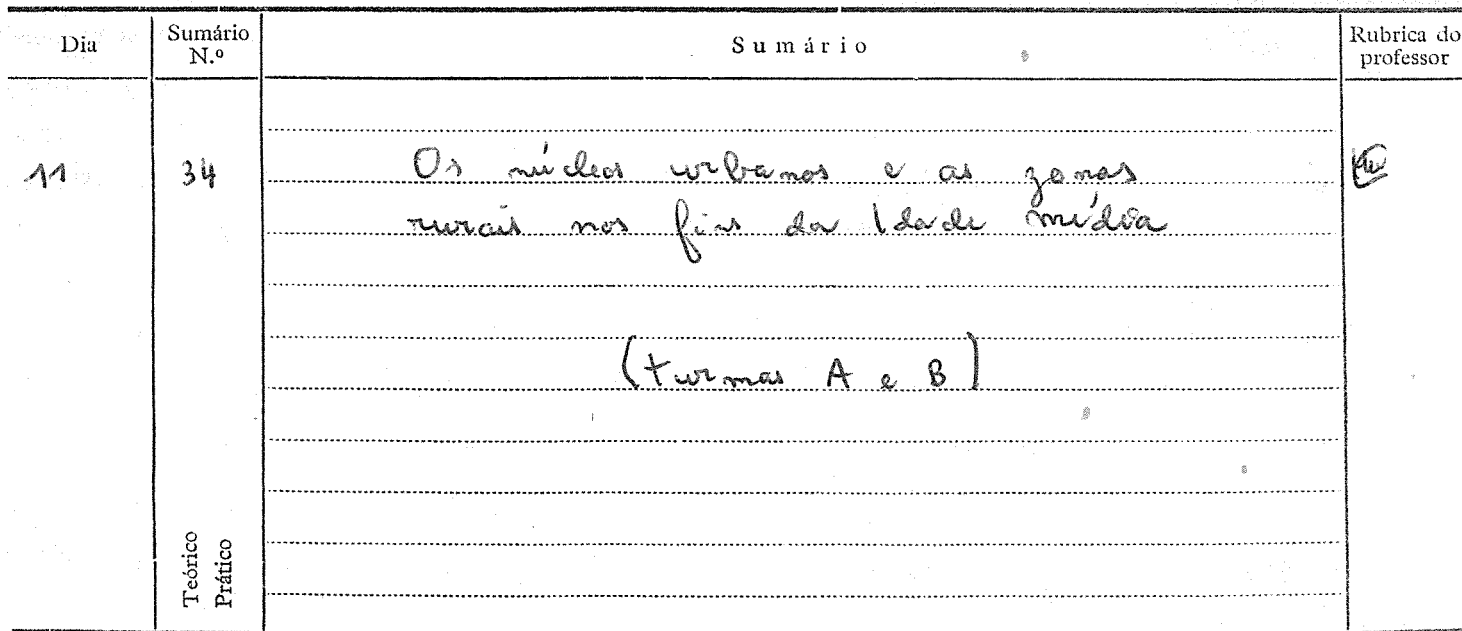 Dia Sumário N.º Sumário Rubrica do professor
11 34 Os núcleos urbanos e as zonas
rurais nos fins da Idade média
(turmas A e B)
Teórico
Prático